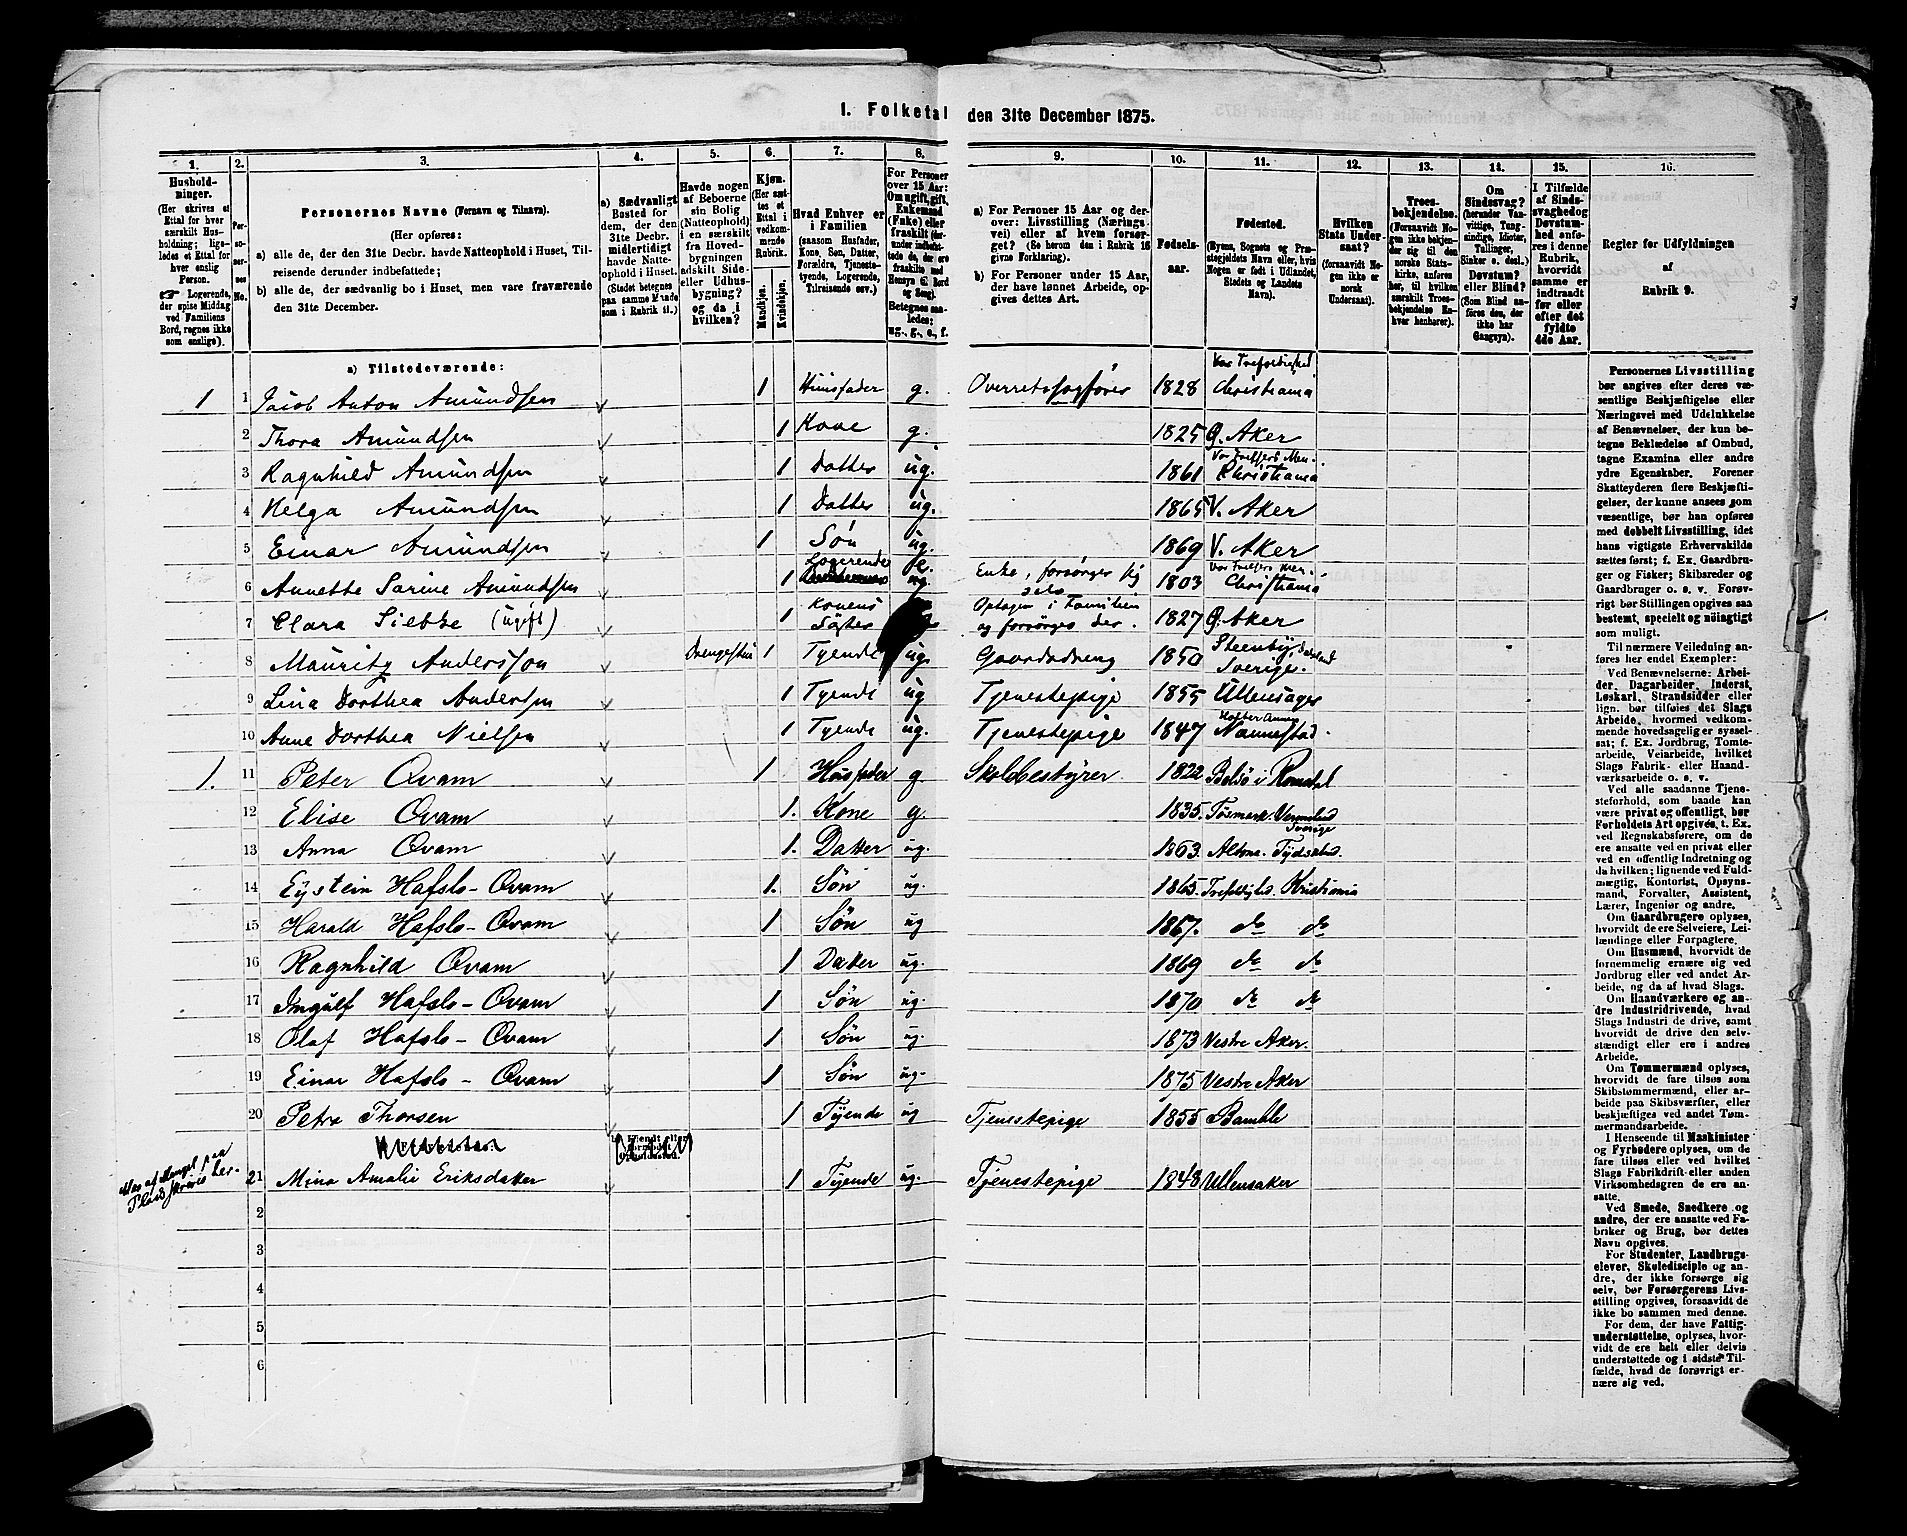 I. Folketal den 31te December 1875.
1. 2. 3. 4. 5. 6. 7. 8. 9. 10. 11. 12. 13. 14. 15. 16.
Husholdninger. (Her skrives et Ettal for hver særskilt Husholdning; ligeledes et Ettal for hver enslig Person. ☞ Logerende, der spise Middag ved Familiens Bord, regnes ikke som enslige).
Personernes No.
Personernes Navne (Fornavn og Tilnavn).
(Her opføres:
a) alle de, der den 31te Decbr. havde Natteophold i Huset, Tilreisende derunder indbefattede;
b) alle de, der sædvanlig bo i Huset, men vare fraværende den 31te December.
a) Sædvanligt Bosted for dem, der den 31te Decbr. midlertidigt havde Natteophold i Huset. (Stedet betegnes paa samme Maade som i Rubrik 11.)
Havde nogen af Beboerne sin Bolig (Natteophold) i en særskilt fra Hovedbygningen adskilt Side- eller Udhusbygning? og da i hvilken?
Kjøn. (Her sættes et Ettal i vedkommende Rubrik.
Mandkjøn. Kvindekjøn.
Hvad Enhver er i Familien (saasom Husfader, Kone, Søn, Datter, Forældre, Tjenestetyende, Logerende, Tilreisende osv.)
For Personer over 15 Aar: Om ugift, gift, Enkemand (Enke) eller fraskilt
Betegnes saaledes: ug., g., e., f.
a) For Personer 15 Aar og derover: Livsstilling (Næringsvei) eller af hvem forsørget? (Se herom den i Rubrik 16 givne Forklaring).
b) For Personer under 15 Aar, der have lønnet Arbeide, opgives dettes Art.
Fødselsaar.
Fødested. (Byens, Sognets og Præstegjeldets Navn eller, hvis Nogen er født i Udlandet, Stedets og Landets Navn).
Hvilken Stats Undersaat? (forsaavidt Nogen ikke er norsk Undersaat).
Troesbekjendelse. (Forsaavidt Nogen ikke bekjender sig til den norske Statskirke, anføres her, til hvilken særskilt Troesbekjendelse Enhver henhører).
Om Sindssvag? (herunder Vanvittige, Tungsindige, Idioter, Tullinger, Sinker o. desl.) Døvstum? eller Blind? (Som Blind anføres den, der ikke har Gangsyn).
I Tilfælde af Sindssvaghed og Døvstumhed anføres i denne Rubrik, hvorvidt samme er indtraadt før eller efter det fyldte 4de Aar.
Regler for Udfyldningen af Rubrik 9.
a) Tilstedeværende:
1 1 Jacob Anton Amundsen 1 Huusfader g. Overretssagfører 1828 Christiania
2 Thora Amundsen 1 Kone g. 1825 Ø. Aker
3 Ragnhild Amundsen 1 Datter ug. 1861 Vor Frelsers Men. Christiania
4 Helga Amundsen 1 Datter ug. 1865 V. Aker
5 Einar Amundsen 1 Søn ug. 1869 V. Aker
6 Annette Sarine Amundsen 1 Logerende Enke, forsørger sig selv 1803 Christiania
7 Clara Siebke (ugift) 1 Konens Søster Optagen i Familien og forsørges der. 1827 Ø. Aker
8 Mauritz Andersson 1 Tyende ug. Gaardsdreng 1850 Sverige.
9 Lina Dorthea Andersen 1 Tyende ug Tjenestepige 1855 Ullensager
10 Anne Dorthea Nielsen 1 Tyende ug. Tjenestepige 1847 Nannestad.
1. 11 Peter Qvam 1 Husfader g Skolebestyrer 1822 Bolsø i Romsdal
12 Elise Qvam 1. Kone g. 1835. Vermland Sverige
13 Anna Qvam 1. Datter ug. 1863. Altona. Tydskld.
14 Eystein Hafslo-Qvam 1. Søn ug. 1865. Kristiania
15 Harald Hafslo-Qvam 1 Søn ug 1867. do do
16 Ragnhild Qvam 1 Datter ug. 1869 do do
17 Ingulf Hafslo-Qvam 1 Søn ug. 1870 do do
18 Olaf Hafslo-Qvam 1 Søn ug. 1873 Vestre Aker.
19 Einar Hafslo-Qvam 1 Søn ug. 1875 Vestre Aker
20 Petra Thorsen 1 Tyende ug Tjenestepige 1855 Bamble
Mas af Mangel paa Plads skrives her.
21 Mina Amalie Eriksdatter 1 Tyende ug. Tjenestepige 1848 Ullensaker
2
3
4
5
6
Personernes Livsstilling bør angives efter deres væsentlige Beskjæftigelse eller Næringsvei med Udelukkelse af Benævnelser, der kun betegne Beklædelse af Ombud, tagne Examina eller andre ydre Egenskaber. Forener Skatteyderen flere Beskjæftigelser, der kunne ansees som væsentlige, bør han opføres med dobbelt Livsstilling, idet hans vigtigste Erhvervskilde sættes først; f. Ex. Gaardbruger og Fisker; Skibsreder og Gaardbruger o. s. v. Forøvrigt bør Stillingen opgives saa bestemt, specielt og nöiagtigt som muligt.
Til nærmere Veiledning anføres her endel Exempler:
Ved Benævnelserne: Arbeider, Dagarbeider, Inderst, Løskarl, Strandsidder eller lign. bør tilføies det Slags Arbeide, hvormed vedkommende hovedsagelig er sysselsat; f. Ex. Jordbrug, Tomtearbeide, Veiarbeide, hvilket Slags Fabrik- eller Haandværksarbeide o. s. v.
Ved alle saadanne Tjenesteforhold, som baade kan være privat og offentligt, bør Forholdets Art opgives, t. Ex. ved Regnskabsførere, om de ere ansatte ved en privat eller ved en offentlig Indretning og da hvilken; lignende ved Fuldmægtig, Kontorist, Opsynsmand, Forvalter, Assistent, Lærer, Ingeniør og andre.
Om Gaardbrugere oplyses, hvorvidt de ere Selveiere, Leilændinge eller Forpagtere.
Om Husmænd, hvorvidt de fornemmelig ernære sig ved Jordbrug eller ved andet Arbeide, og da af hvad Slags.
Om Haandværkere og andre Industridrivende, hvad Slags Industri de drive, samt hvorvidt de drive den selvstændigt eller ere i andres Arbeide.
Om Tømmermænd oplyses, hvorvidt de fare tilsøs som Skibstømmermænd, eller arbeide paa Skibsværfter, eller beskjæftiges ved andet Tømmermandsarbeide.
I Henseende til Maskinister og Fyrbødere oplyses, om de fare tilsøs eller ved hvilket Slags Fabrikdrift eller anden Virksomhedsgren de ere ansatte.
Ved Smede, Snedkere og andre, der ere ansatte ved Fabriker og Brug, bør dettes Navn opgives.
For Studenter, Landbrugselever, Skoledisciple og andre, der ikke forsørge sig selv, bør Forsørgerens Livsstilling opgives, forsaavidt de ikke bo sammen med denne.
For dem, der have Fattigunderstøttelse, oplyses, hvorvidt de ere helt eller delvis understøttede og i sidste Tilfælde, hvad de forøvrigt ernære sig ved.